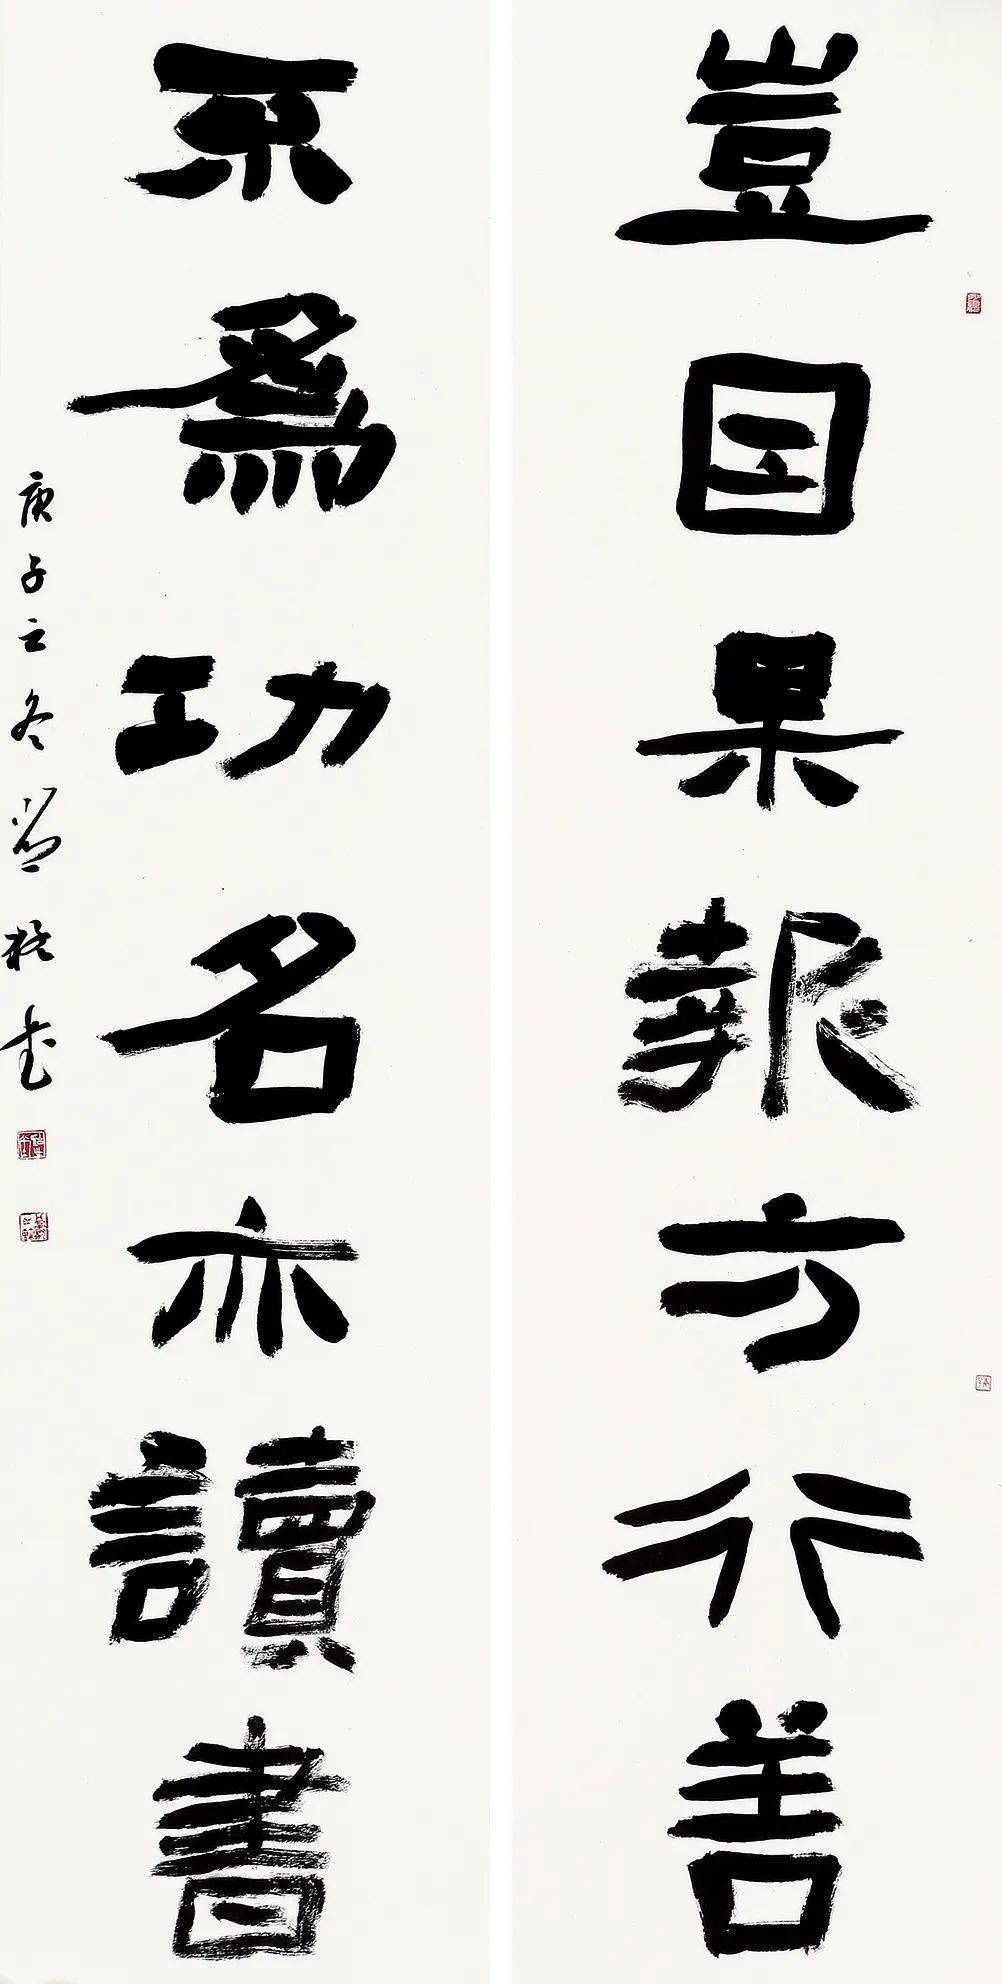 豈因果報方行善
不為功名亦讀書
庚子立冬
書